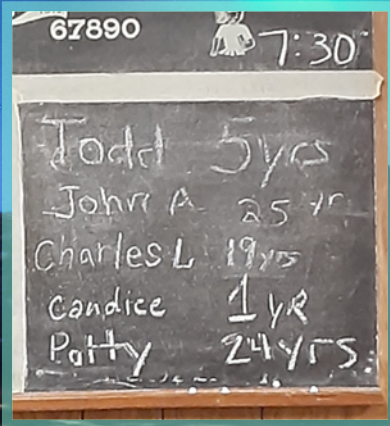 67890
7:30
Todd 5yrs
John A 25 yr
Charles L 19yrs
Candice 1 yR
Patty 24 yrs